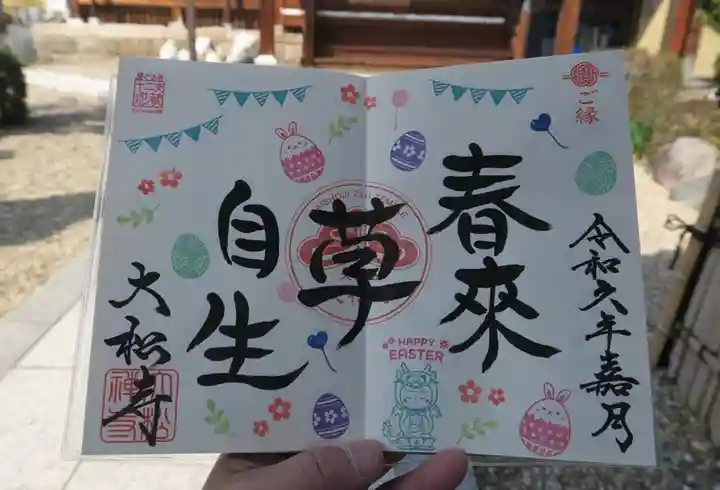 ご縁
令和六年嘉月
春來
草
自生
HAPPY
EASTER
大松寺